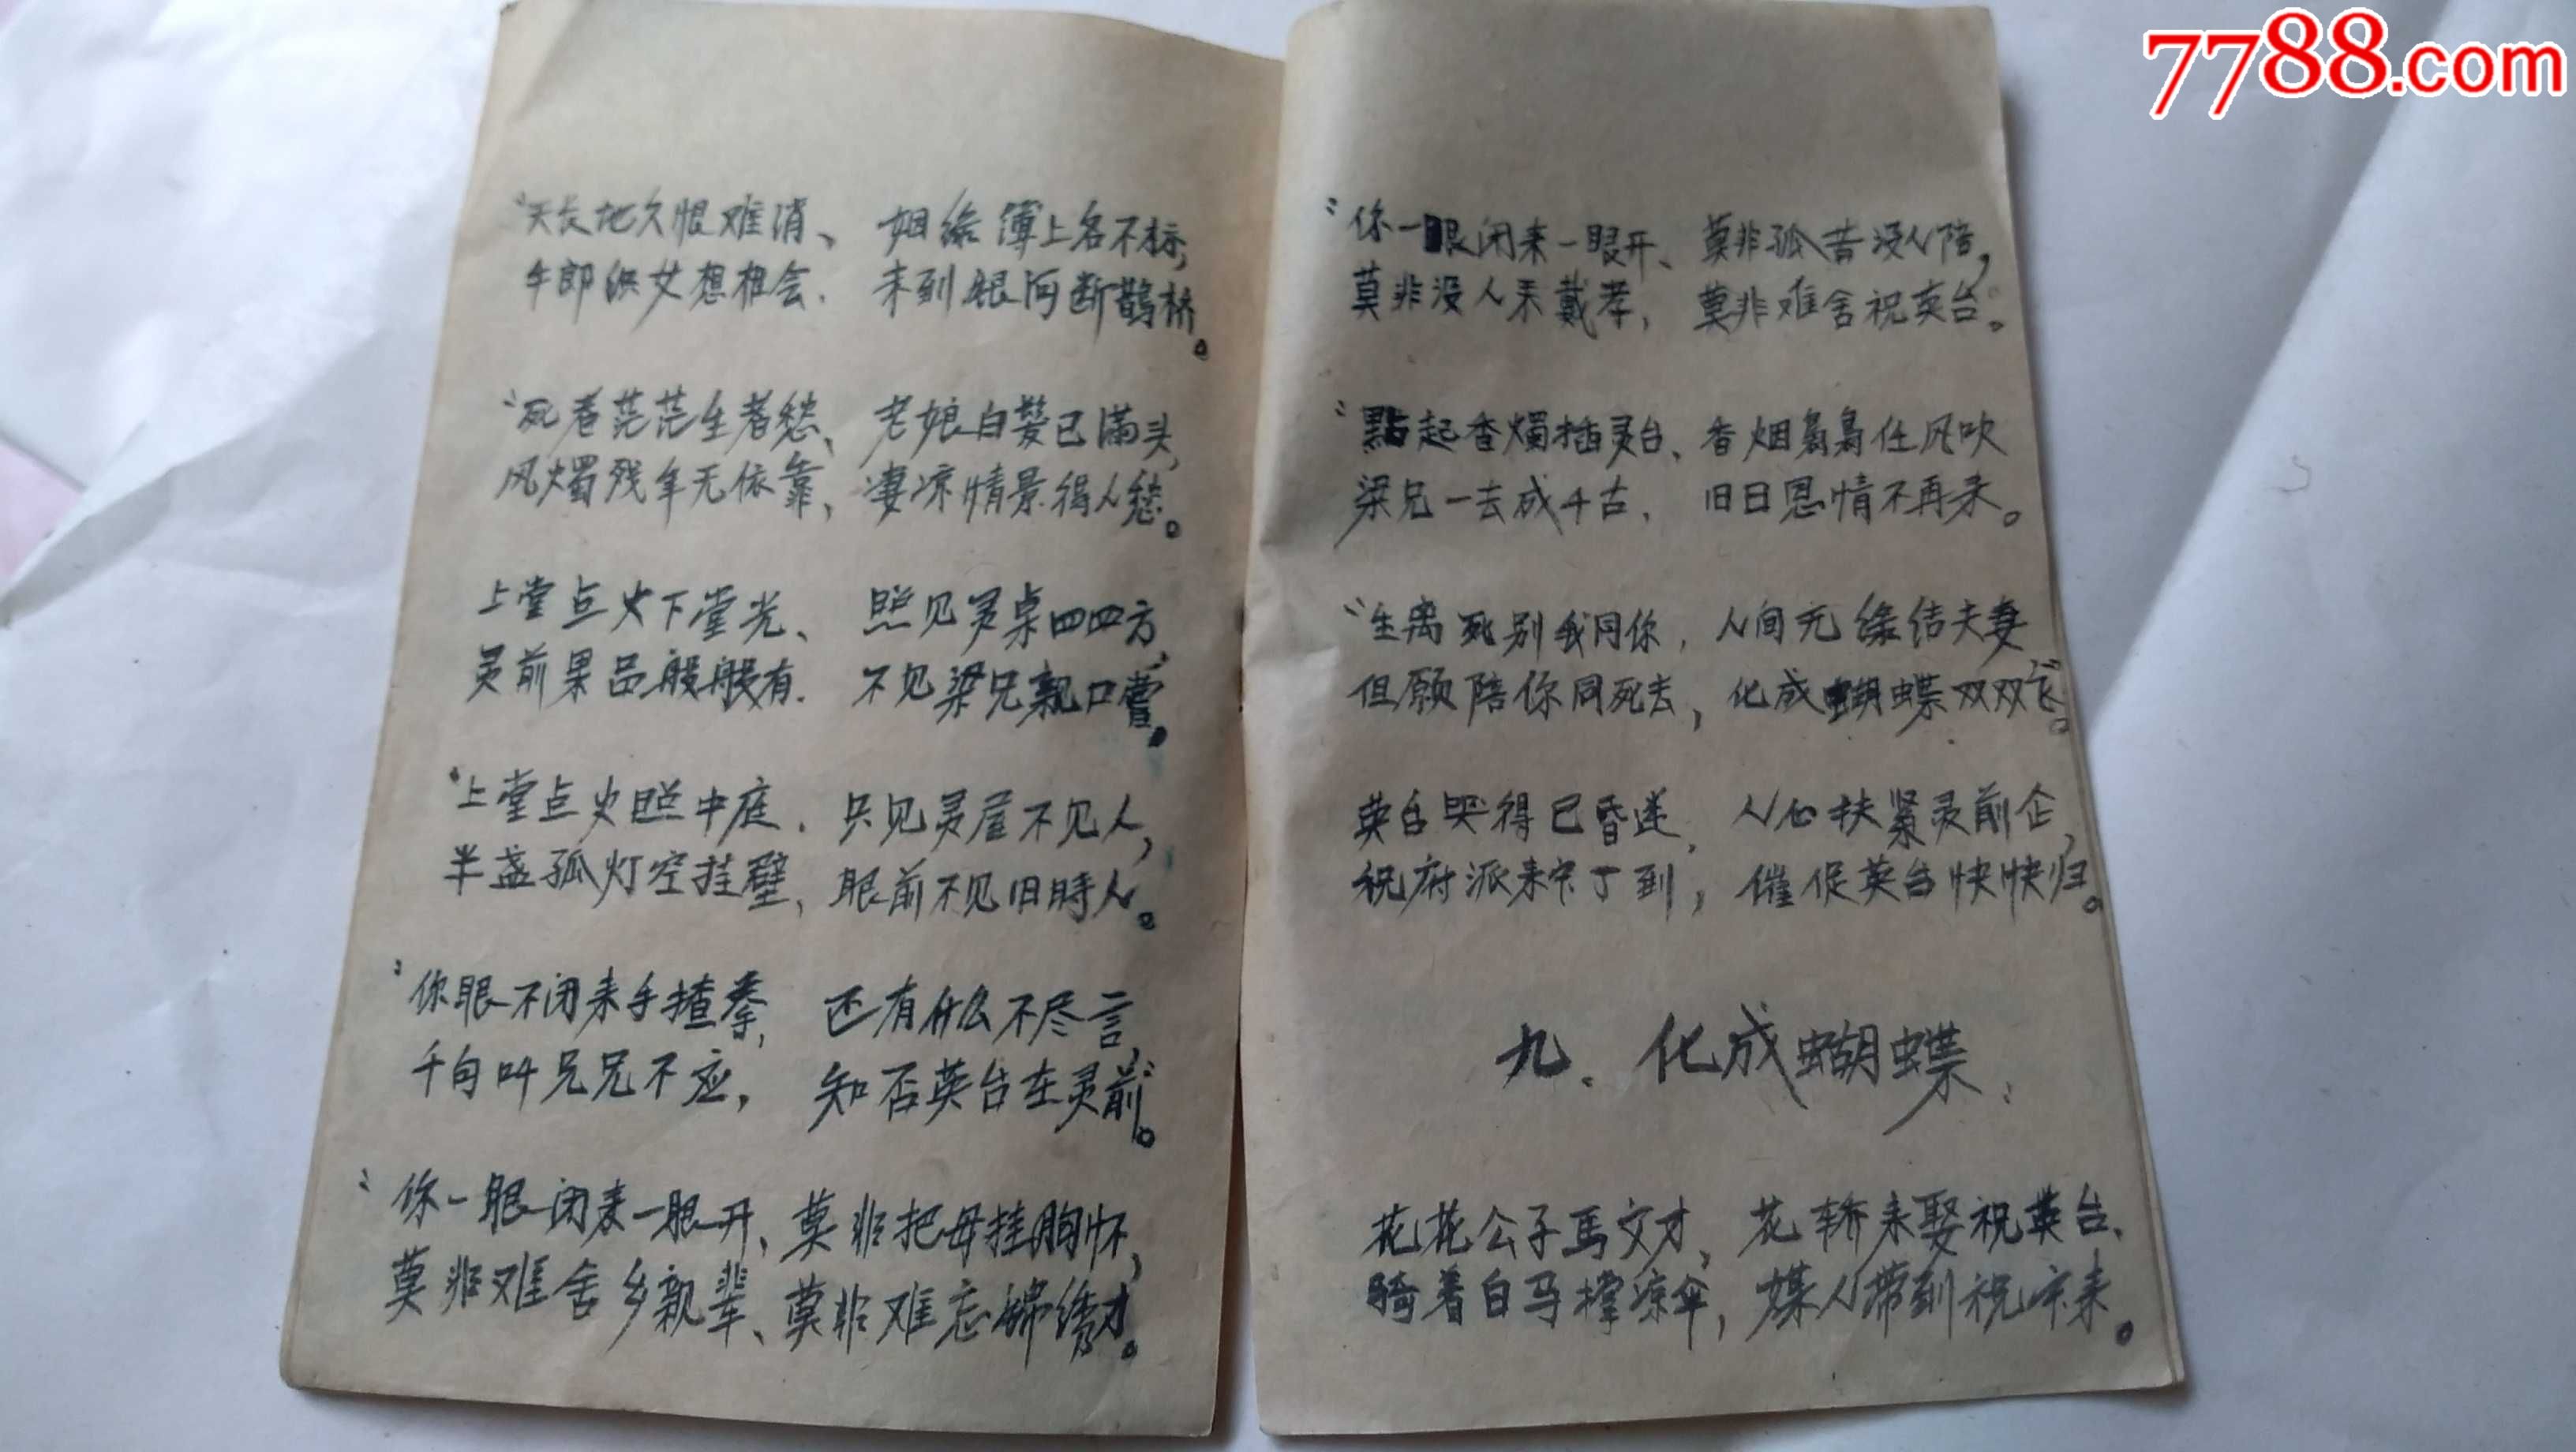 7788.com
“天长地久恨难消、 姻缘簿上名不标,
牛郎织女想相会. 来到银河断鹊桥。
“死者茫茫生者愁、 老娘白髮已满头,
风烛残年无依靠, 凄凉情景得人愁。
上堂点火下堂光、 照见灵桌四四方,
灵前果品般般有. 不见梁兄亲口嚐。
“上堂点火照中庭. 只见灵屋不见人,
半盏孤灯空挂壁, 眼前不见旧時人。
“你眼不闭来手揸拳, 还有什么不尽言,
千句叫兄兄不应, 知否英台在灵前”。
“你一眼闭来一眼开、莫非把母挂胸怀,
莫非难舍乡親辈、莫非难忘锦绣才。
“你一眼闭来一眼开、 莫非孤苦没人陪,
莫非没人来戴孝, 莫非难舍祝英台。
“點起香燭插灵台、香烟裊裊任风吹
梁兄一去成千古. 旧日恩情不再来。
“生离死别我同你, 人间无缘结夫妻
但愿陪你同死去, 化成蝴蝶双双飞”。
英台哭得已昏迷, 人心扶紧灵前企,
祝府派来家丁到, 催促英台快快归。
九、化成蝴蝶:
花花公子馬文才, 花轿来娶祝英台.
骑着白马撑凉伞, 媒人带到祝家来。